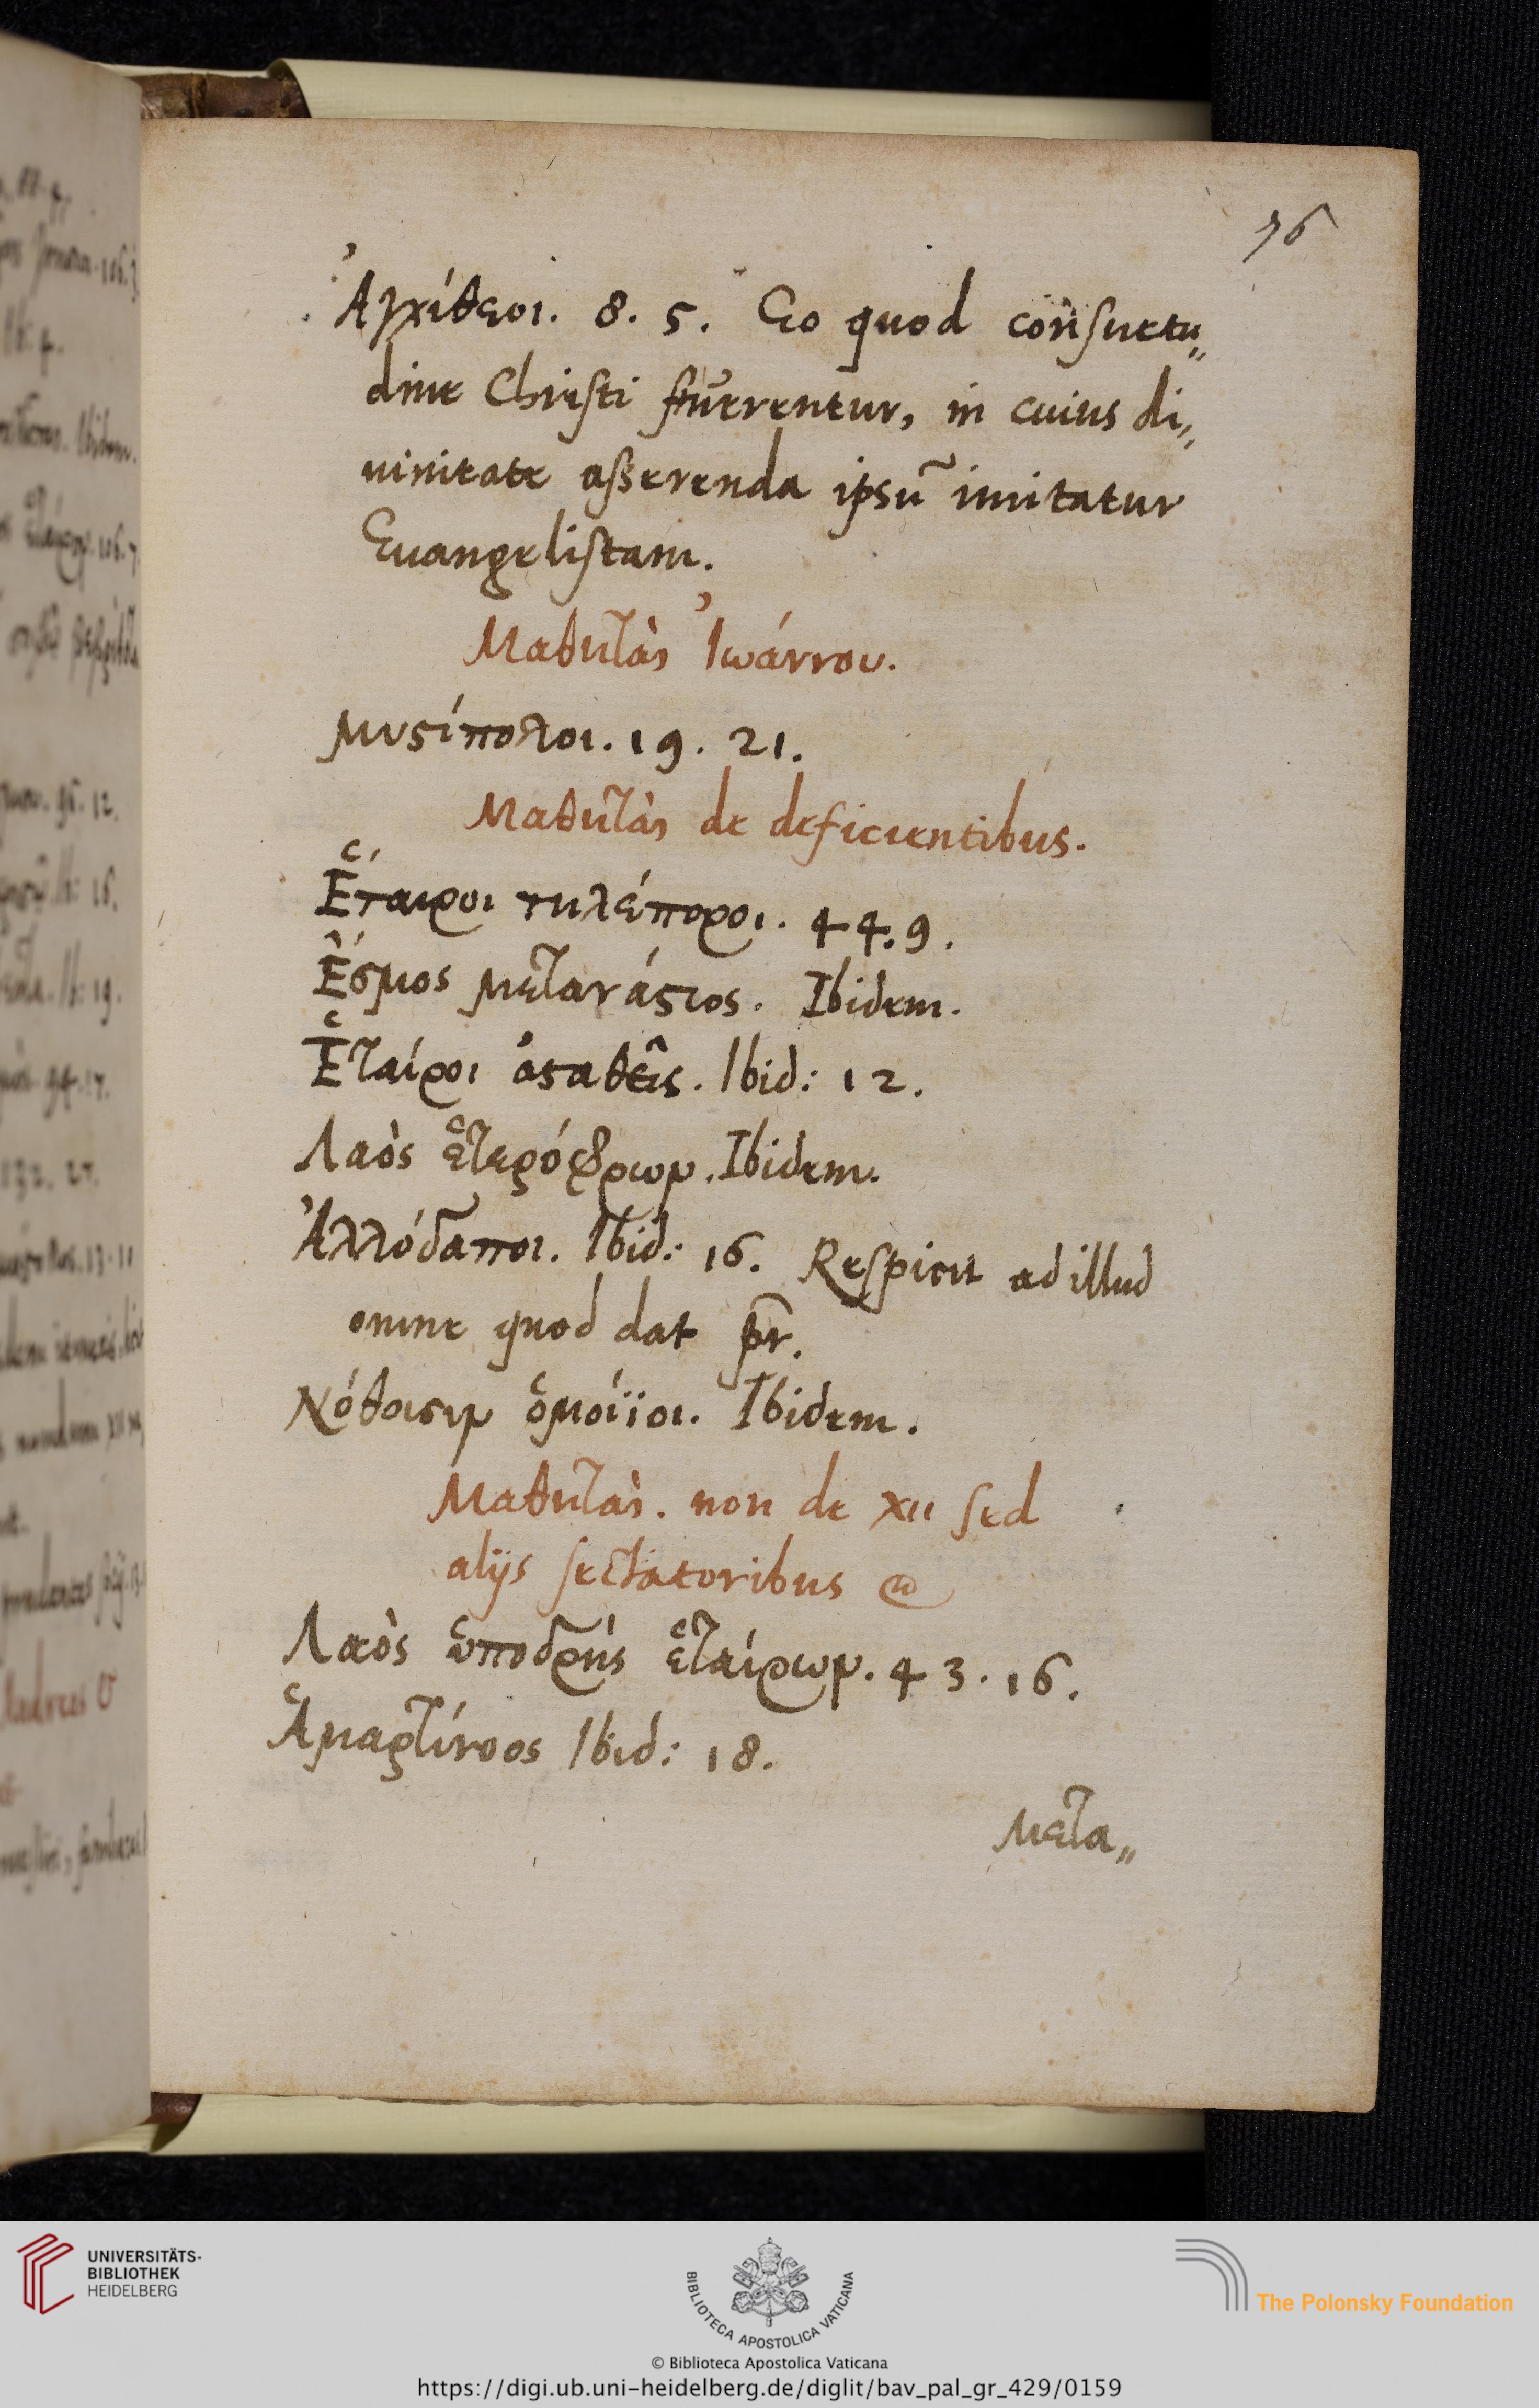 76
Ἀγχίθεοι. 8. 5. Eo quod consuetu„
dine Christi fruerentur, in cuius di„
uinitate asserenda ipsũ imitatur
Euangelistam.
Μαθηταὶ Ἰωάννου.
Μυστίπολοι. 19. 21.
Μαθηταὶ de deficientibus.
Ἕταιροι τηλέποροι. 44. 9.
Ἑσμὸς μετανάστος. Ibidem.
Ἑταῖροι ἀσταθεῖς. Ibid: 12.
Λαὸς ἑτερόφρων. Ibidem.
Ἀλλόδαποι. Ibid: 16. Respicit ad illud
omne quod dat pr̃.
Νόθοισιν ὁμοίϊοι. Ibidem.
Μαθηταὶ. non de XII sed
alijs sectatoribus
Λαὸς ὑποδρὴς ἑταίρων. 43. 16.
Ἁμαρτίνοος Ibid: 18.
Μετα„
UNIVERSITÄTS-
BIBLIOTHEK
HEIDELBERG
BIBLIOTECA APOSTOLICA VATICANA
The Polonsky Foundation
© Biblioteca Apostolica Vaticana
https://digi.ub.uni-heidelberg.de/diglit/bav_pal_gr_429/0159